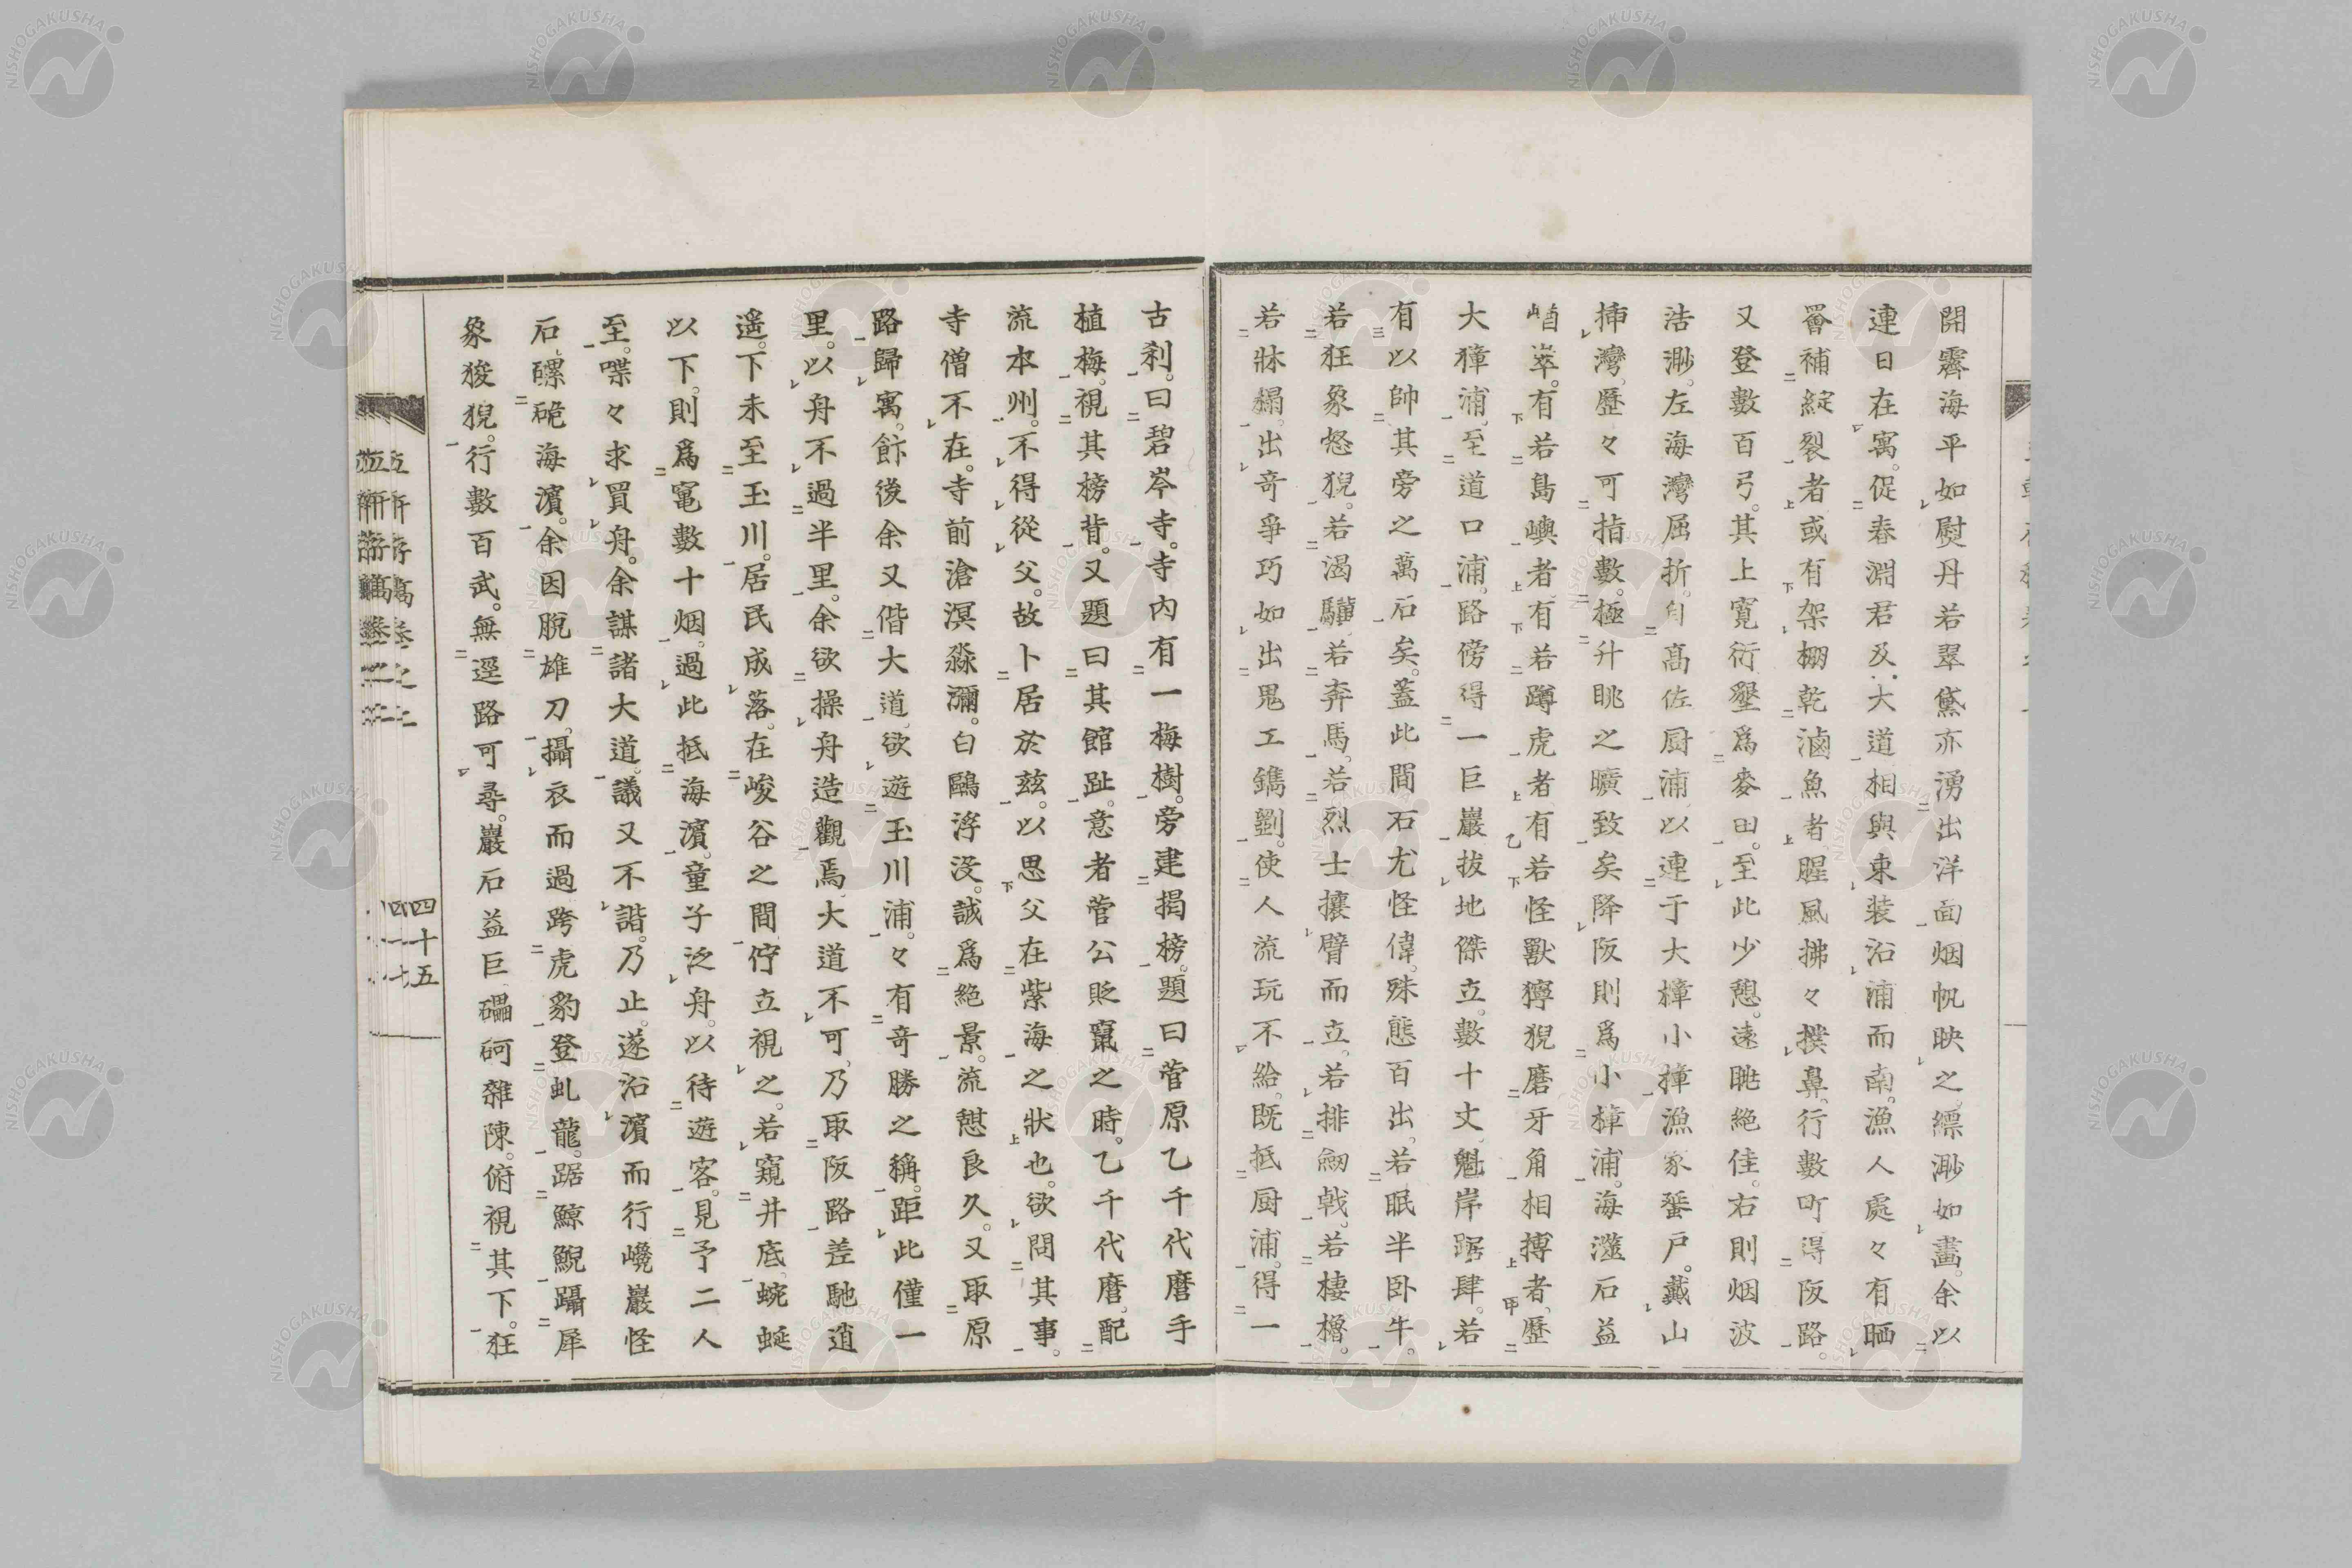 開霽海平如熨丹若翠黛亦湧出洋面烟帆映之縹渺如畫余以
連日在寓促春淵君及大道相與東装沿浦而南漁人處々有晒
罾補綻裂者或有架棚乾滷魚者腥風拂々撲鼻行數町得阪路
又登數百弓其上寛衍墾爲麥田至此少憩遠眺絶佳右則烟波
浩渺左海灣屈折自高佐厨浦以連于大樟小樟漁家蜑戸戴山
挿灣歷々可指數極升眺之曠致矣降阪則爲小樟浦海灘石益
崷崒有若島嶼者有若蹲虎者有若怪獸獰猊磨牙角相搏者歷
大獐浦至道口浦路傍得一巨巖拔地傑立數十丈魁岸踞肆若
有以帥其旁之萬石矣蓋此間石尤怪偉殊態百出若眠半卧牛
若狂象怒猊若渴驥若奔馬若烈士攘臂而立若排劒戟若棲櫓
若牀榻出奇爭巧如出鬼工鐫劉使人流玩不給既抵厨浦得一
古刹曰碧岑寺寺内有一梅樹旁建揭榜題曰菅原乙千代麿手
植梅視其榜背又題曰其館趾意者菅公貶竄之時乙千代麿配
流本州不得從父故卜居於兹以思父在紫海之狀也欲問其事
寺僧不在寺前滄溟淼瀰白鷗浮没誠爲絶景流憇良久又取原
路歸寓飰後余又偕大道欲遊玉川浦々有奇勝之稱距此僅一
里以舟不過半里余欲操舟造觀焉大道不可乃取阪路差馳逍
遥下未至玉川居民成落在峻谷之間佇立視之若窺井底蜿蜒
以下則爲竃數十烟過此抵海濵童子泛舟以待遊客見予二人
至喋々求買舟余謀諸大道議又不諧乃止遂沿濵而行巉巖怪
石磥硊海濵余因脱雄刀攝衣而過跨虎豹登虬龍踞鯨鯢躡犀
象狻猊行數百武無逕路可尋巖石益巨礧砢雜陳俯視其下狂
四十五